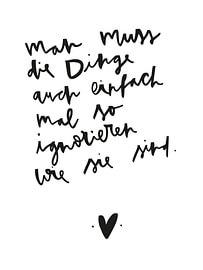 man muss
die Dinge
auch einfach
mal so
ignorieren
wie sie sind.